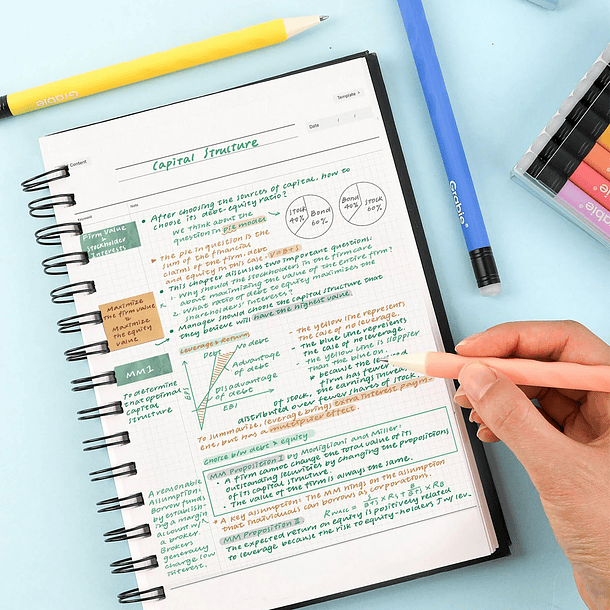 Grabie
Grabie
Grabie
Grabie
Template
Content
Date / /
Keyword
Note
Capital Structure
Firm Value
&
Stockholder
Interests
• After choosing the sources of capital, how to
choose its debt-equity ratio?
We think about the
question in pie models
Stock 40%
Bond 60%
Bond 40%
Stock 60%
• The pie in question is the
sum of the financial
claims of the firm, debt
and equity in this case: V=B+S
• This chapter discusses two important questions:
1. Why should the stockholders in the firm care
about maximizing the value of the entire firm?
2. What ratio of debt to equity maximizes the
shareholders' interests?
• Manager should choose the capital structure that
they believe will have the highest value.
Maximize
the firm value
&
Maximize
the equity
value
MM1
To determine
that optimal
capital
structure
Leverage & Return
Debt
No debt
Advantage
of debt
Disadvantage
of debt
EPS
EBI
- the yellow line represents
the case of no leverage.
- the blue line represents
the case of no leverage.
- the yellow line is sloppier
than the blue on
• because the le
firm has fewer
of stock, the earnings increa
distributed over fewer shares of stock
To summarize, leverage brings extra interest paym-
ent, but has a multiplier effect.
Choose b/w debt & equity
MM Proposition I by Modigliani and Miller:
• A firm cannot change the total value of its
outstanding securities by changing the propositions
of its capital structure.
• The value of the firm is always the same.
A reasonable
assumption:
Borrow funds
by establish-
ing a margin
account w/
a broker.
Brokers
generally
charge low
interest.
• A key assumption: The MM hings on the assumption
that individuals can borrow as corporation.
MM Proposition II
The expected return on equity is positively related
to leverage because the risk to equity-holders ↑w/ lev.